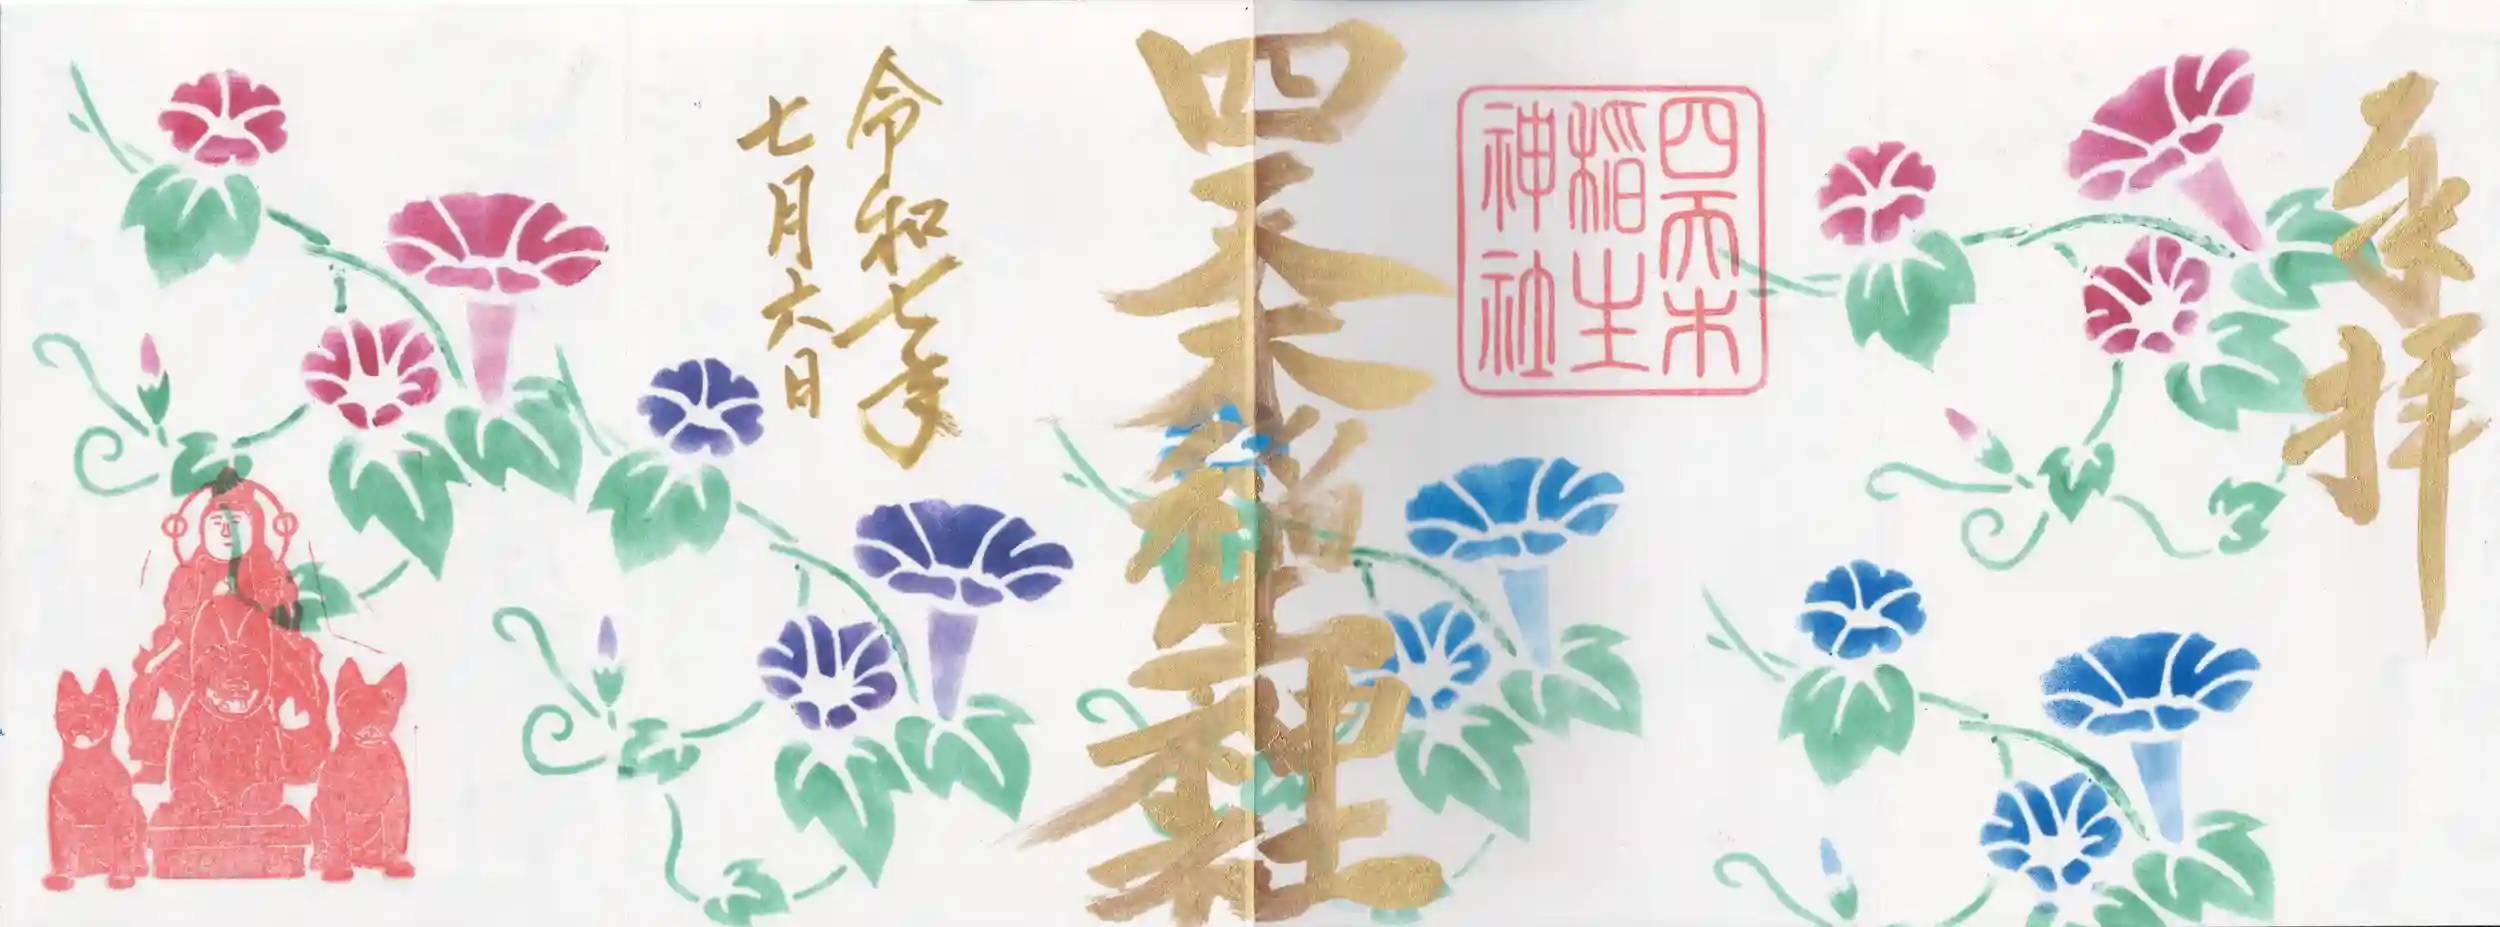 奉拝
四天木
稲生
神社
四天木稲生神社
令和七年
七月六日